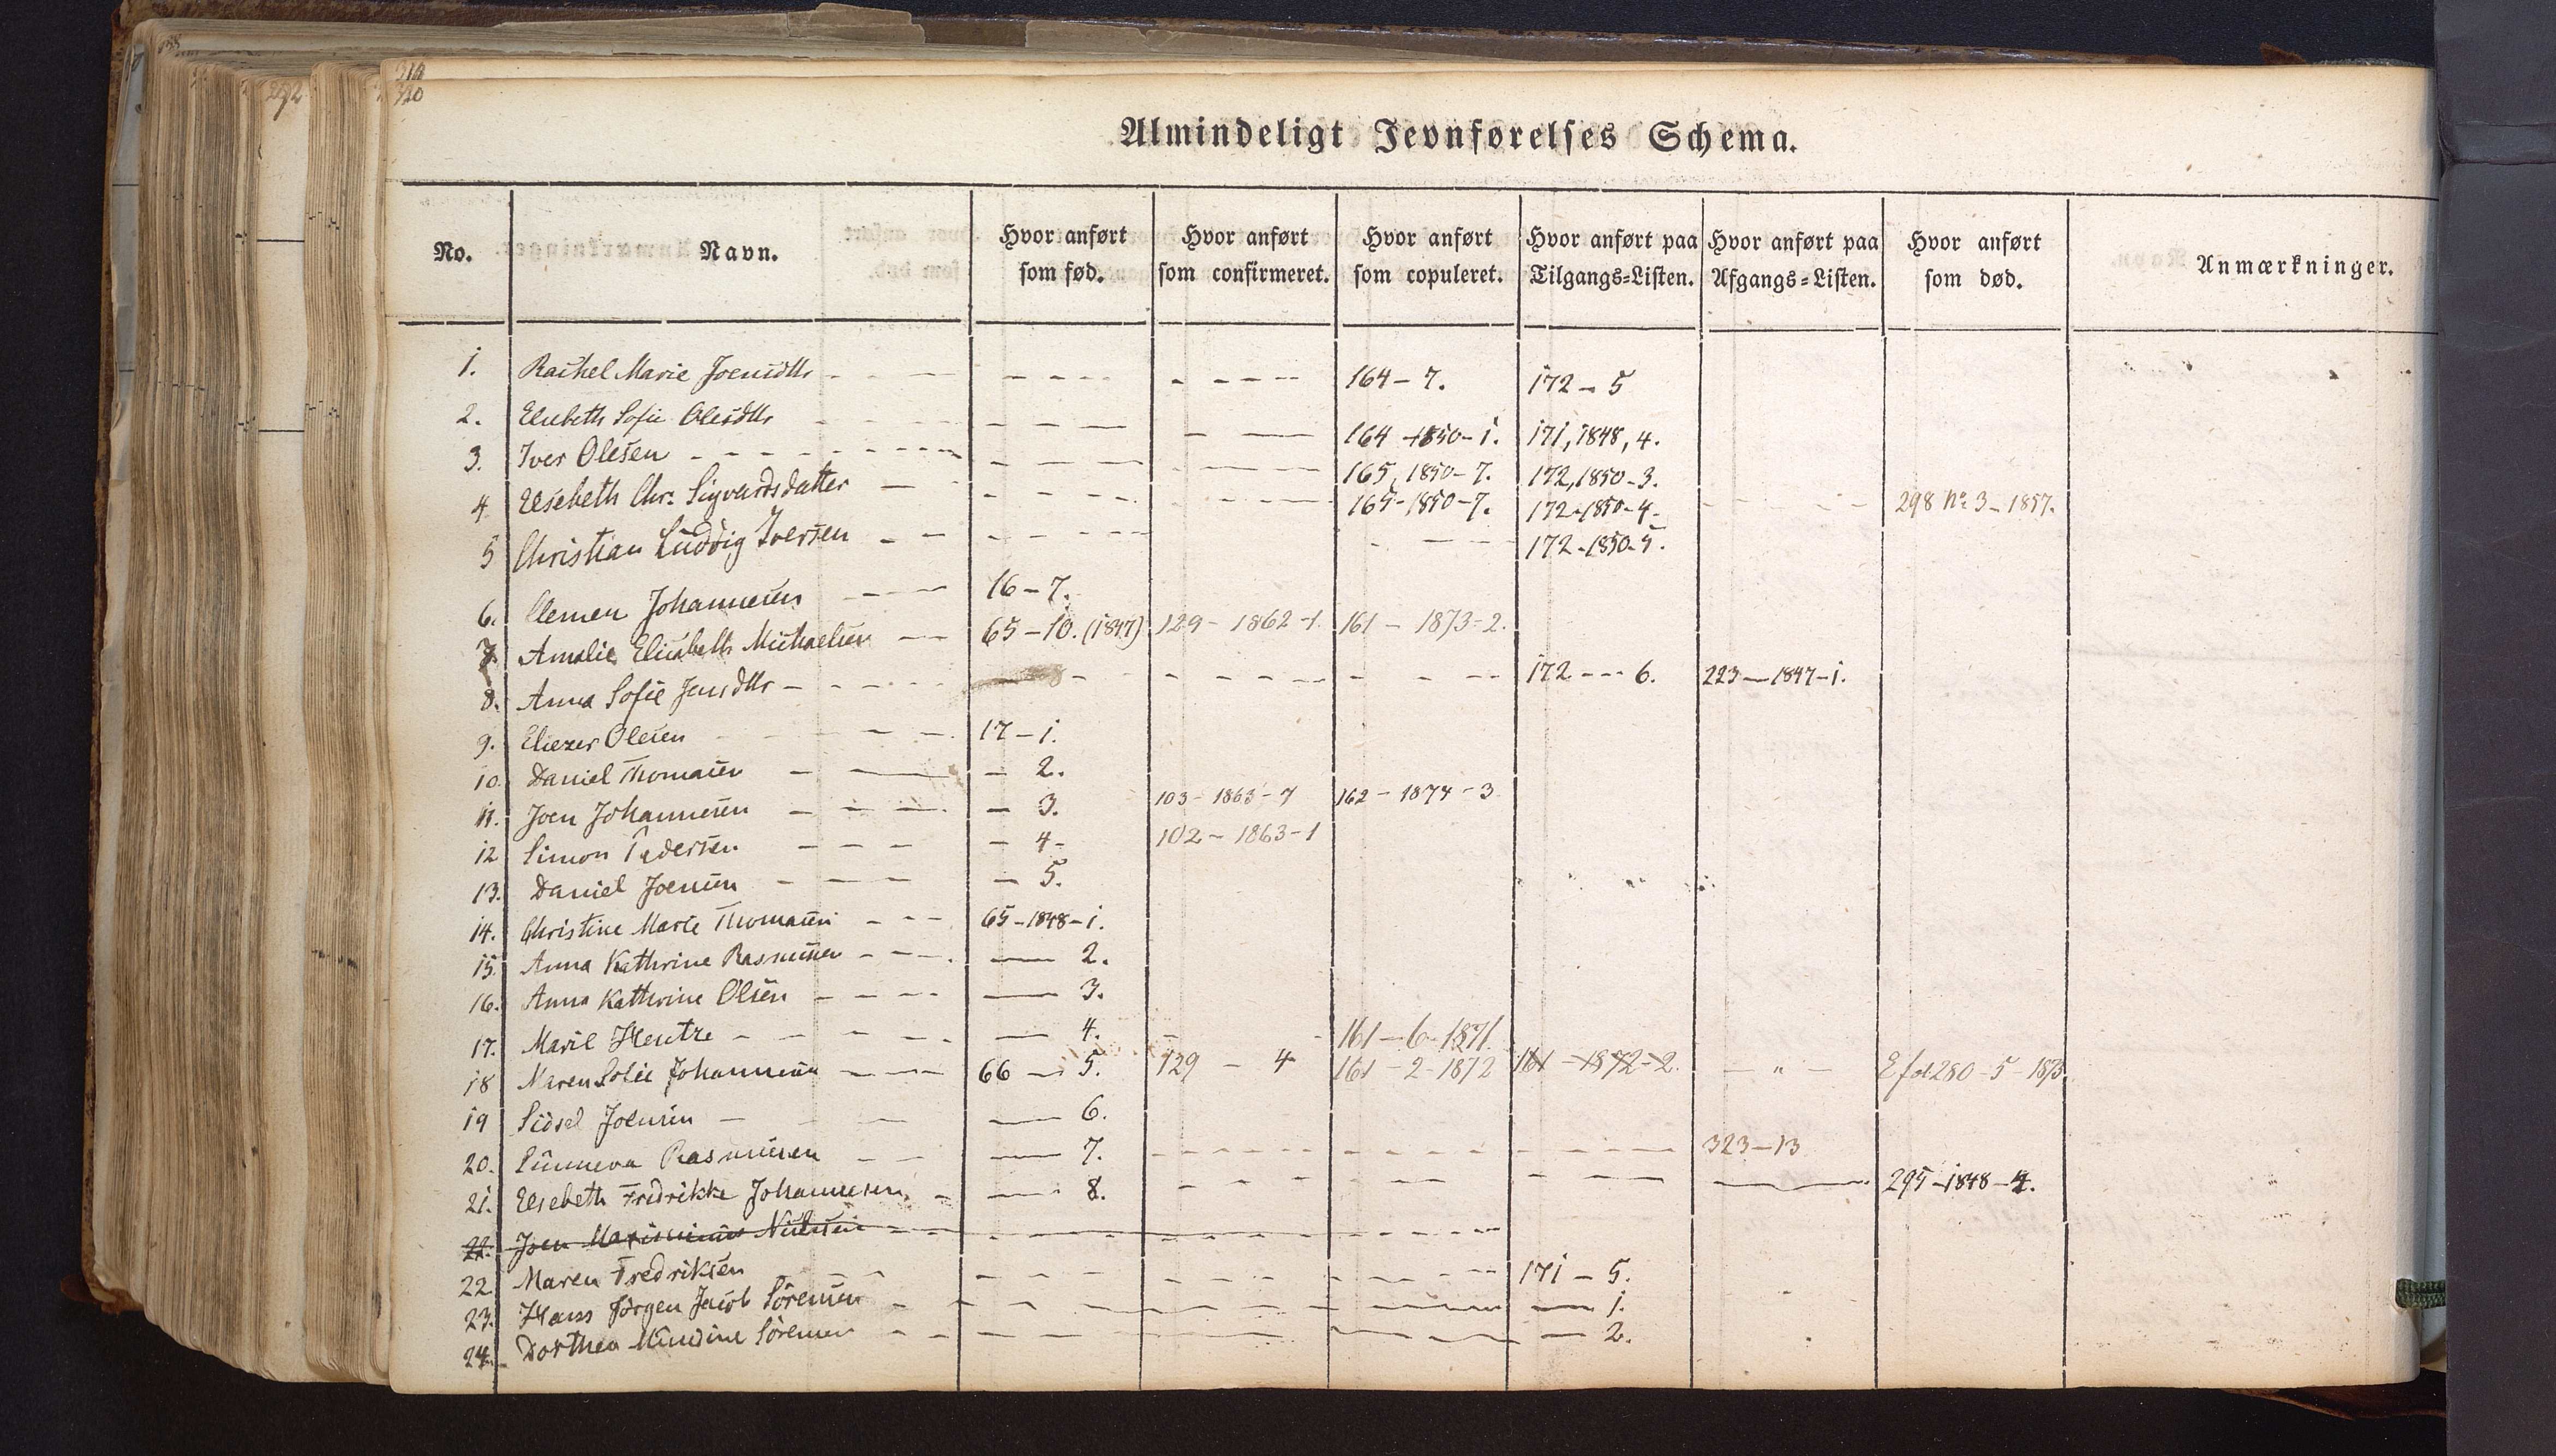 292
310
Almindeligt Jevnførelses Schema.
No. Navn. Hvor anført som fød. Hvor anført som confirmeret. Hvor anført som copuleret. Hvor anført paa Tilgangs=Listen. Hvor anført paa Afgangs=Listen. Hvor anført som død. Anmærkninger.
1. Rachel Marie Joensdtr - - - - - - - - - - - 164 - 7. 172 - 5
2. Elsebeth Sofie Olesdtr - - - - - - - - 164 - 1850 - 1. 171, 1848, 4.
3. Iver Olesen - - - - - - - - - - - 165, 1850 - 7. 172, 1850 - 3.
4. Elsebeth Chr. Sigvardsdatter - - - - - - - - 165 - 1850 - 7. 172 - 1850 - 4 - - - - 298 No 3 - 1857.
5 Christian Luddvig Iversen - - - - - - - - - 172 - 1850 - 5.
6. Clemen Johannesen - - - 16 - 7.
7. Amalie Elisabeth Michaelsen - - 65 - 10. (1847) 129 - 1862 - 1. 161 - 1873 - 2.
8. Anna Sofie Jensdtr - - - - - - - - - - - - - 172 - - - 6. 223 - 1847 - 1.
9. Eliezer Olesen - - - - 17 - 1.
10. Daniel Thomasen - - - 2.
11. Joen Johannesen - - - - 3. 103 - 1863 - 7 162 - 1874 - 3
12 Simon Pedersen - - - - 4 - 102 - 1863 - 1
13. Daniel Joensen - - - - 5.
14. Christine Marie Thomasen - - - 65 - 1848 - 1.
15. Anna Kathrine Rasmusen - - - - 2.
16. Anna Kathrine Olsen - - - - - 3.
17. Marie Hentze - - - - - 4. - - 161 - 6 - 1871.
18 Maren Sofie Johannesen - - - 66 - 5. 129 - 4 161 - 2 - 1872 161 - 1872 - 2. - " - E fol 280 - 5 - 1873.
19 Sidsel Joensen - - - 6.
20. Sunneva Rasmusen - - - 7. - - - - - - - - - - - 323 - 13
21. Elsebeth Fredrikke Johannesen - - 8. - - - - - - - - 295 - 1848 - 4.
22. Joen Maximinus Nielsen - - - - - - -
22. Maren Fredriksen - - - - - - - - - - 171 - 5.
23. Hans Jørgen Jacob Sørensen - - - - - - - - 1.
24. Dorthea Sørensen - - - - - - - 2.